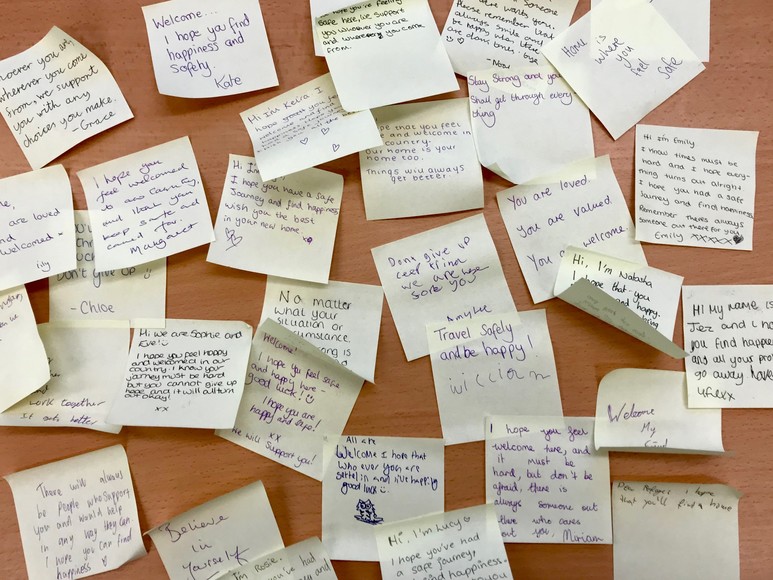 wherever you come
from, we support
you with any
choices you make.
-Grace
Welcome...
I hope you find
happiness and
Safety.
Kate
safe here, we support
you whoever you are
and wherever you come
from.
Please remember that
always smile and
be happy when there
are dark times.
Home is
where
you
feel safe
Hi I'm Keira I
hope
Stay Strong and you
Shall get through every
thing
hope that you feel
and welcome in
country.
our home is your
home too.
Things will always
get better.
Hi I'm Emily
I know times must be
hard and I hope every-
thing turns out alright
I hope you had a safe
Journey and find happiness
Remember theres always
Someone out there for you
Emily xxxxx
are loved
and
welcomed
lily
I hope you
feel welcomed
to our Country,
and that you
keep safe and
cared for.
Margaret
I hope you have a Safe
Journey and find happiness
wish you the best
in your new home.
You are loved.
You are valued.
You welcome
Don't give up
- Chloe
Dont give up
we are
sore you
Hi, I'm Natasha
I hope that you
and happy.
No matter
what your
Situation or
Circumstance.
is
Hi My name is
Jeez and i ho
you find happines
any all your prob
go away have
life xx
work together
It gets better
Hi we are Sophie and
Eve!
I hope you feel happy
and welcomed in our
country. I know your
journey must be hard
but you cannot give up
hope and it will all turn
out okay!
xx
Welcome!
I hope you feel safe
and happy here -
good luck!
I hope you are
happy and safe!
xx
We will Support you!
Travel Safely
and be happy!
Welcome
My
All are
Welcome I hope that
who ever you are
settel in and live happily
good luck
I hope you feel
welcome here, and
it must be
hard, but don't be
afraid, there is
always someone out
there who cares
about you. Miriam
There will always
be People who Support
you and would help
in any way they can.
I hope you can find
happiness
Believe
in
Yourself
I'm Rosie,
you've had
and
Hi, I'm Lucy
I hope you've had
a safe journey,
and find happiness.
you
Dear Refugee, I hope
that you'll find a home